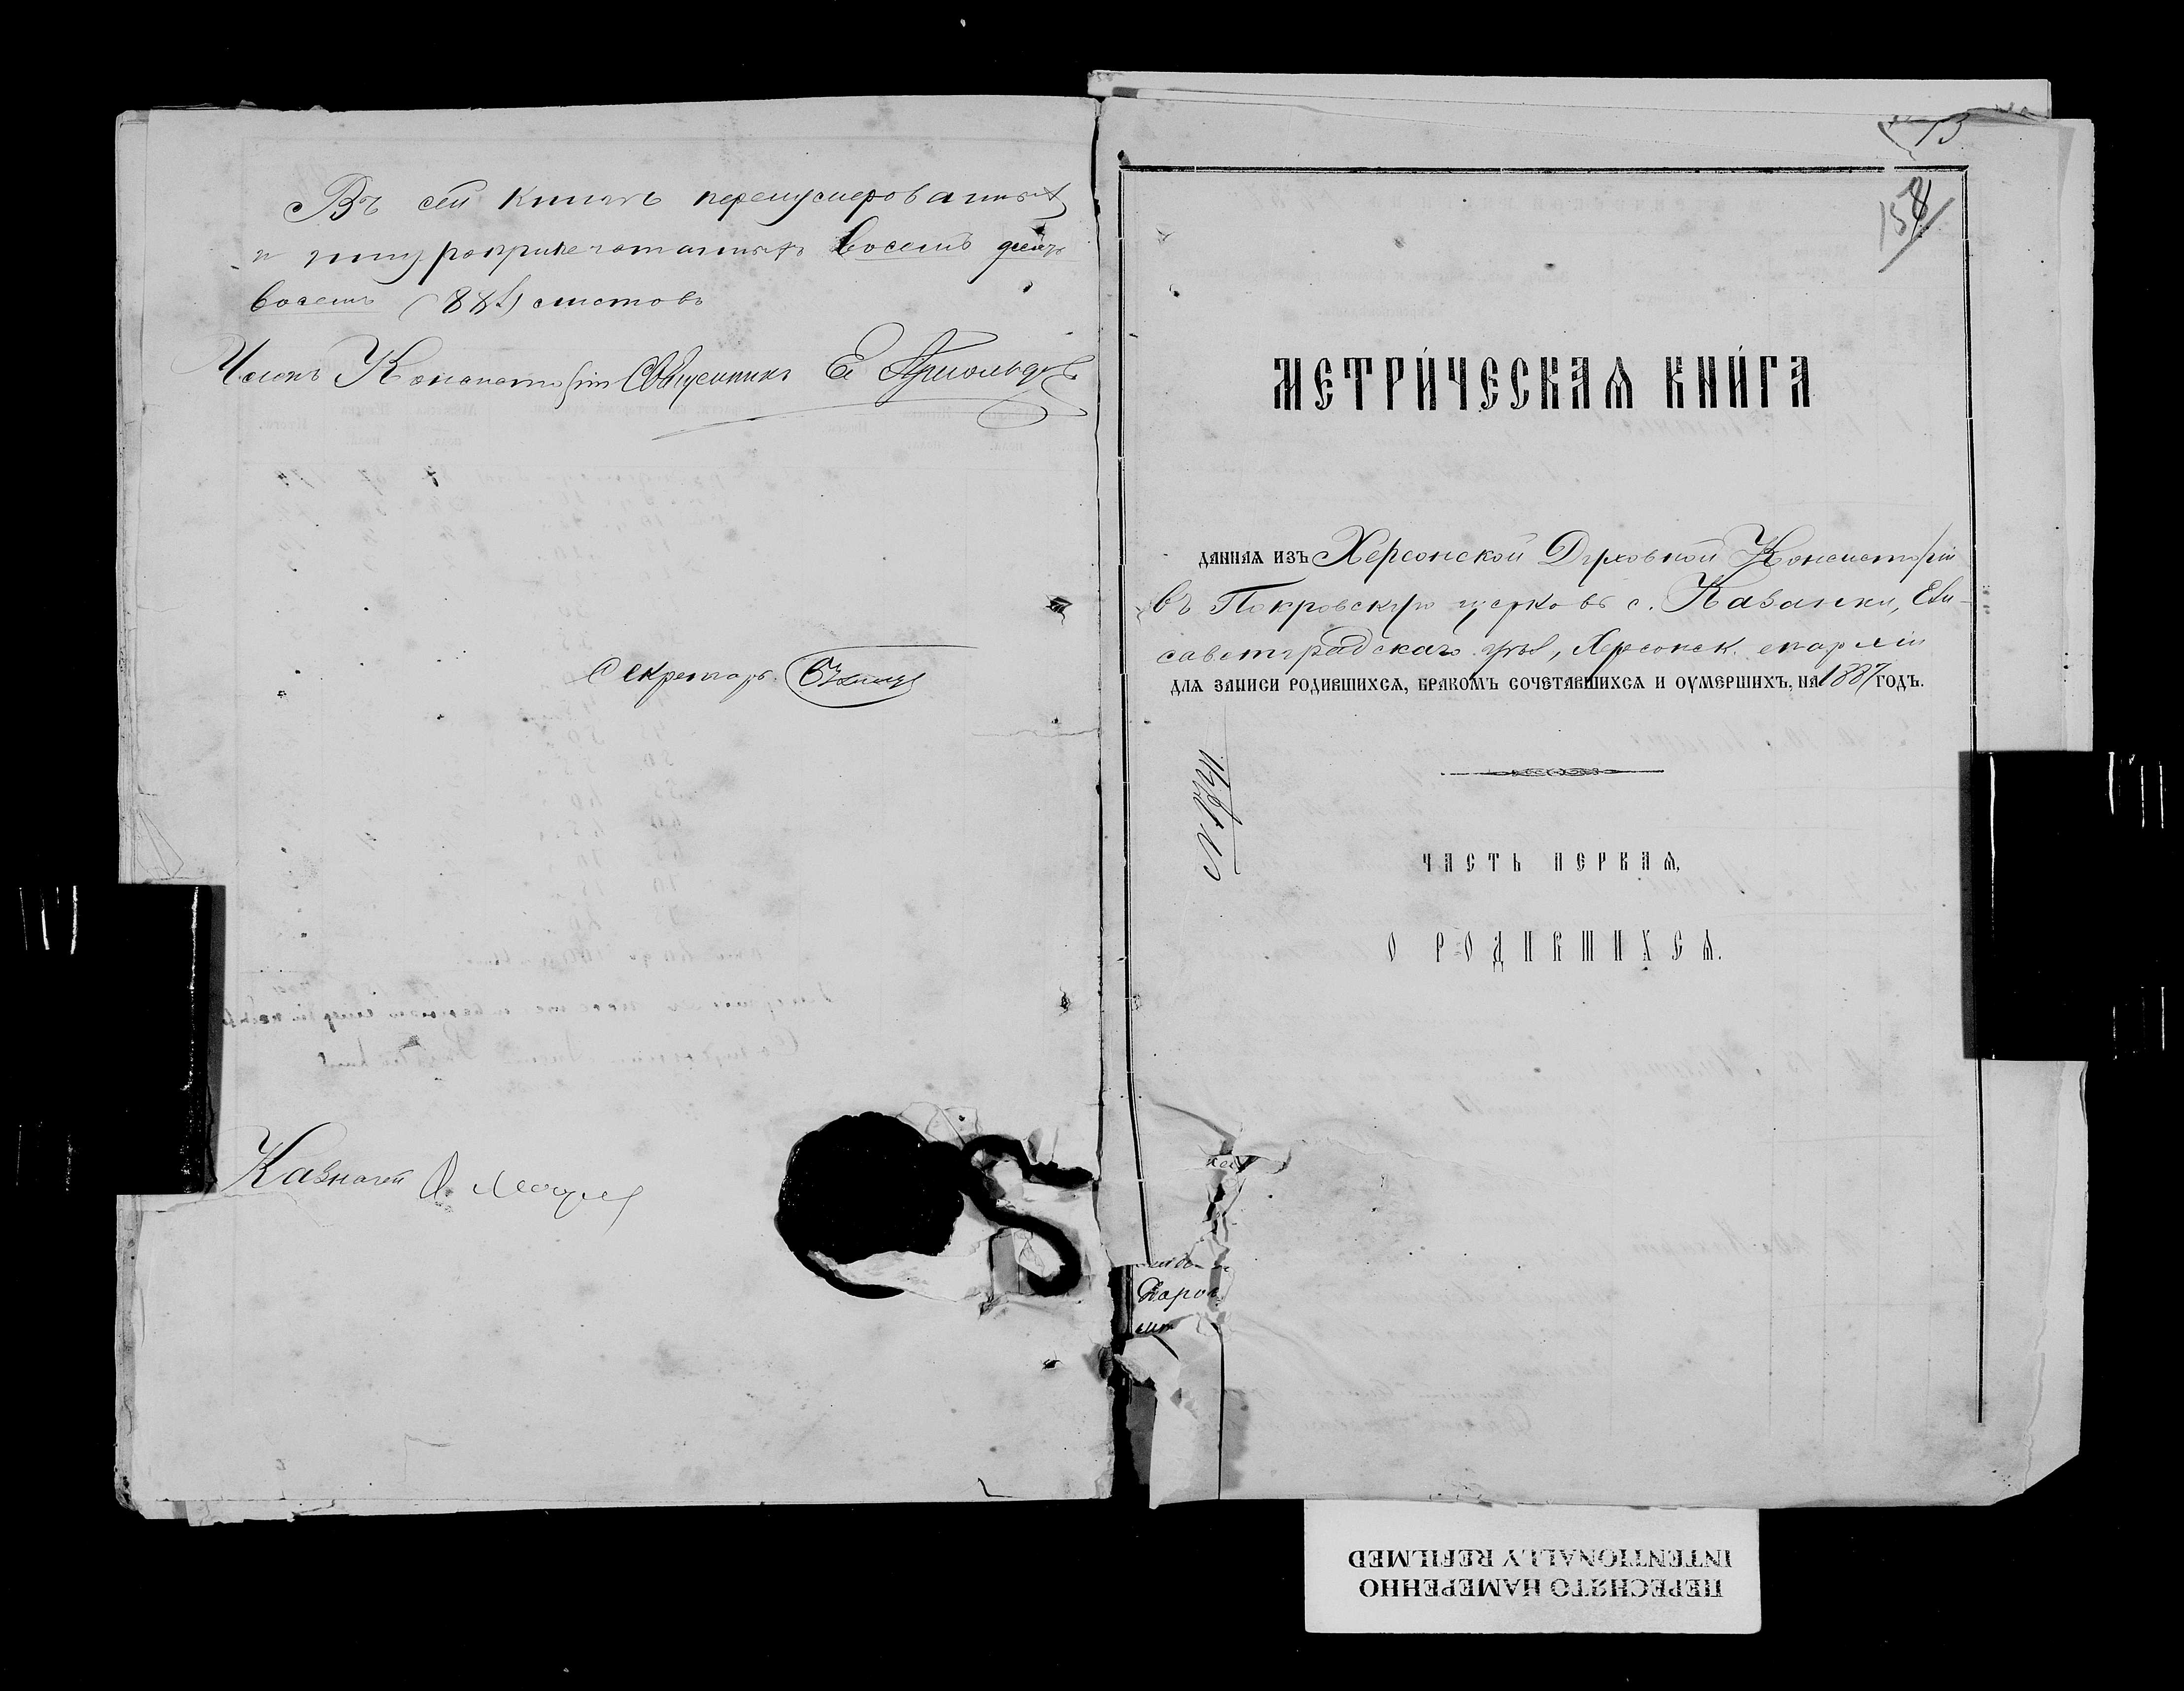 Въ сей книгѣ перенумерованныхъ
и шнуроприпечатанныхъ восемь десятъ
восемь (88) листовъ
Членъ Консисторіи Священникъ Е. Арнольдовъ
Секретарь
Казначей
13
158
МЕТРИ́ЧЕСКАѦ КНИ́ГА
ДАННАѦ ИЗЪ Херсонской Духовной Консисторіи
въ Покровскую церковь с. Казанки, Ели-
саветградскаго уѣз, Херсонск. епархіи
ДЛѦ ЗАПИСИ РОДИВШИХСѦ, БРАКОМЪ СОЧЕТАВШИХСѦ И ОУМЕРШИХЪ, НА 1887 ГОДЪ.
ЧАСТЬ ПЕРВАѦ,
О РОДИВШИХСѦ.
ПЕРЕСНЯТО НАМЕРЕННО
INTENTIONALLY REFILMED